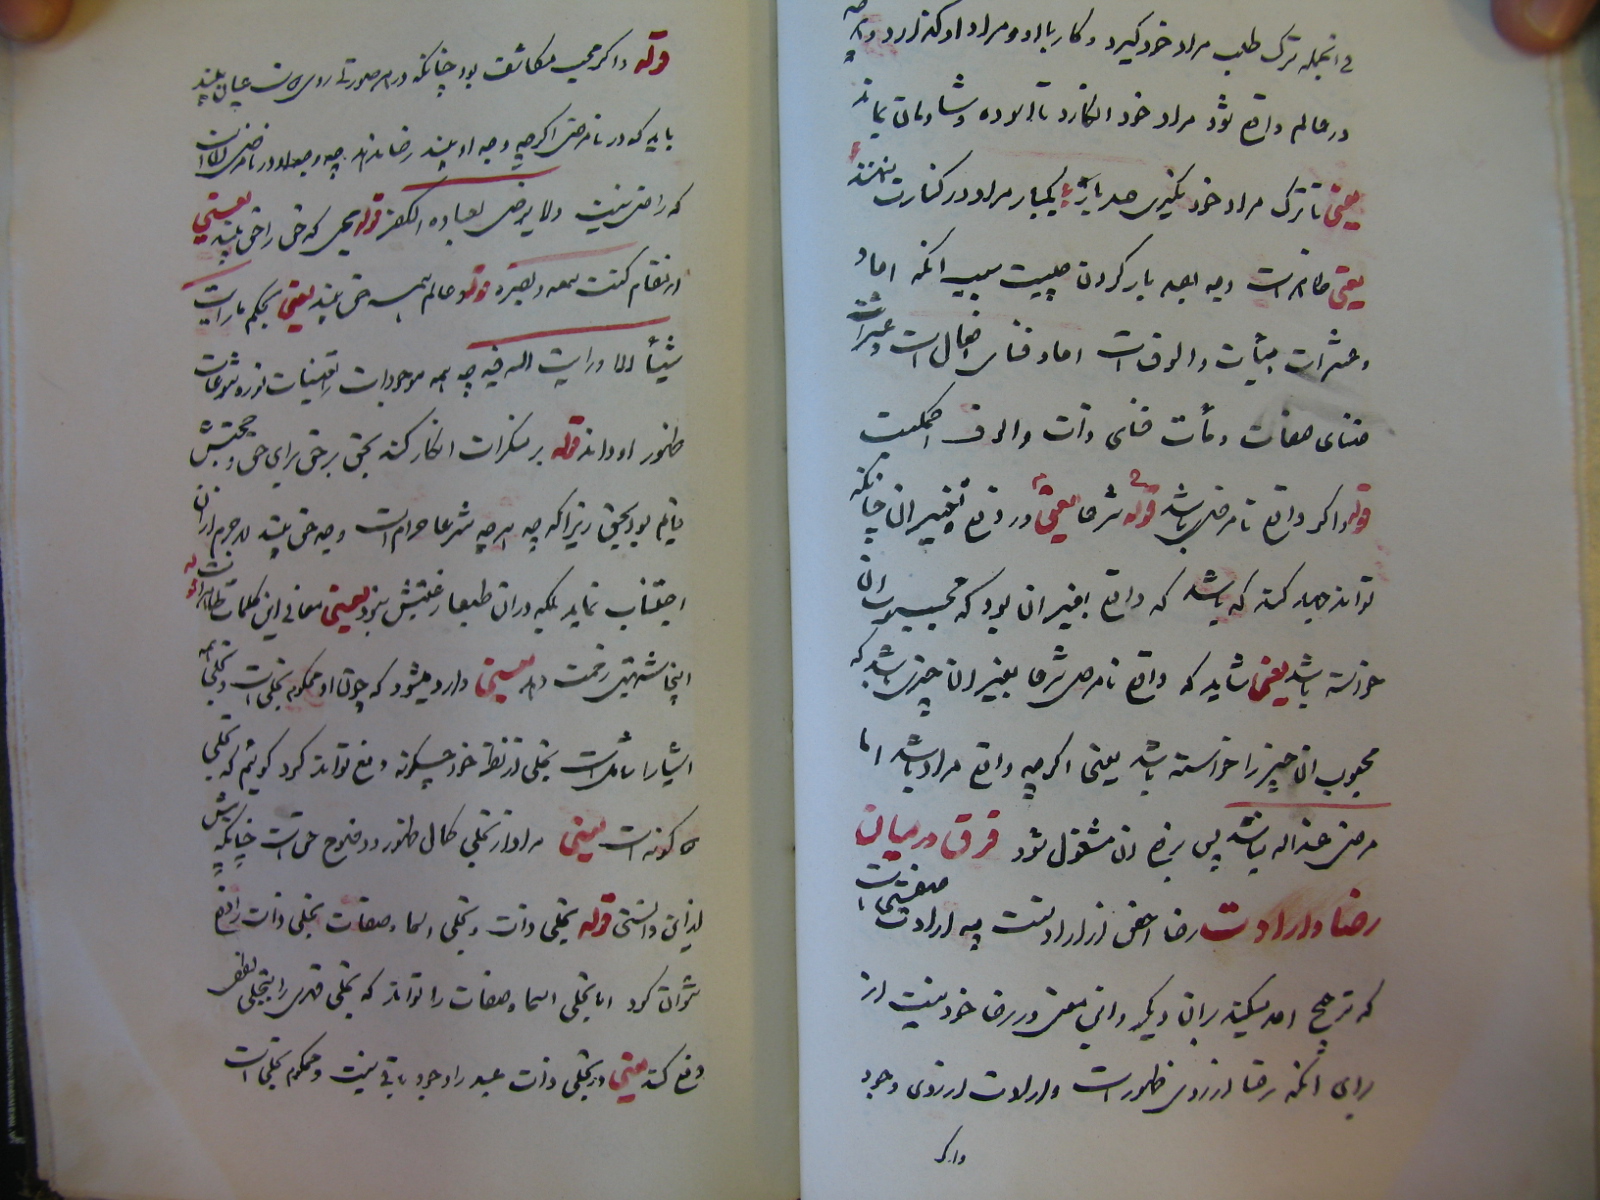 فی الجمله ترک طلب مراد خود گیرد و کار با او و مراد او گذارد و هر چه
در عالم واقع شود مراد خود انگارد تا آسوده و شادمان بماند
یعنی تا ترک مراد خود نگیری صد بار یکبار مراد در کنارت ننهند
یعنی ظاهر است وجه بصد بار کردن چیست سبب آنکه احاد
و عشرات مئات و الوف است احاد فنای افعال است و عشرات
فنای صفات و مأت فنای ذات و الوف
قوله و اگر واقع نامرضی باشد قوله شرعا یعنی در وقوع تغییر آن چنانکه
تواند جهد کند که باشد که واقع تغییر آن بود که محبوب آن
خواسته باشد یعنی شاید که واقع نامرضی شرعا بغیر آن چیزی باشد که
محبوب آن چیز را خواسته باشد یعنی اگرچه واقع مراد باشد اما
مرضی عند الله نباشد پس بتغییر آن مشغول شود فرق در میان
رضا و ارادت رضا اخص از ارادتست چه ارادت صفتی است
که ترجیح احد میکند بر آن دیگر و این معنی در رضا خود نیست از
برای آنکه رضا از روی ظهور است و ارادت از روی وجود
و اگر
قوله و اگر محب مکاشف بود چنانکه در هر صورتی روی دوست عیان بیند
باید که در نامرضی اگرچه وجه او بیند رضا ندهد چه وجه او در نامرضی
که راضی نیست ولا یرضی لعباده الکفر قوله محبی که حق را حق بیند یعنی
در مقام کنت سمعه و بصره قوله و عالم همه حق بیند یعنی بحکم ما رایت
شیئا الا و رایت الله فیه چه همه موجودات را تعینات نور و تنوعات
ظهور او داند قوله بر منکرات انکار کند بحق بر حق برای حق و حجتش
قائم بود بحق زیرا که چه هر چه شرعا حرام است وجه حق بیند لاجرم از آن
اجتناب نماید بلکه در آن طبعا رغبتش نبود یعنی معانی این کلمات ظاهر است قوله
اینجا شبهتی زحمت دهد یعنی وارد میشود که چون او محکوم تجلی است و تجلی همه
اشیا را شامل است تجلی از نظر خود چگونه دفع تواند کرد گوئیم که تجلی
دو گونه است یعنی مراد از تجلی کمال ظهور و وضوح حق است چنانکه پیش
از این دانستی قوله تجلی ذات و تجلی اسما و صفات تجلی ذات را دفع
نتوان کرد اما تجلی اسما و صفات را تواند که تجلی قهری را بتجلی لطفی
دفع کند یعنی در تجلی ذات عبد را وجود باقی نیست و محکوم تجلی است